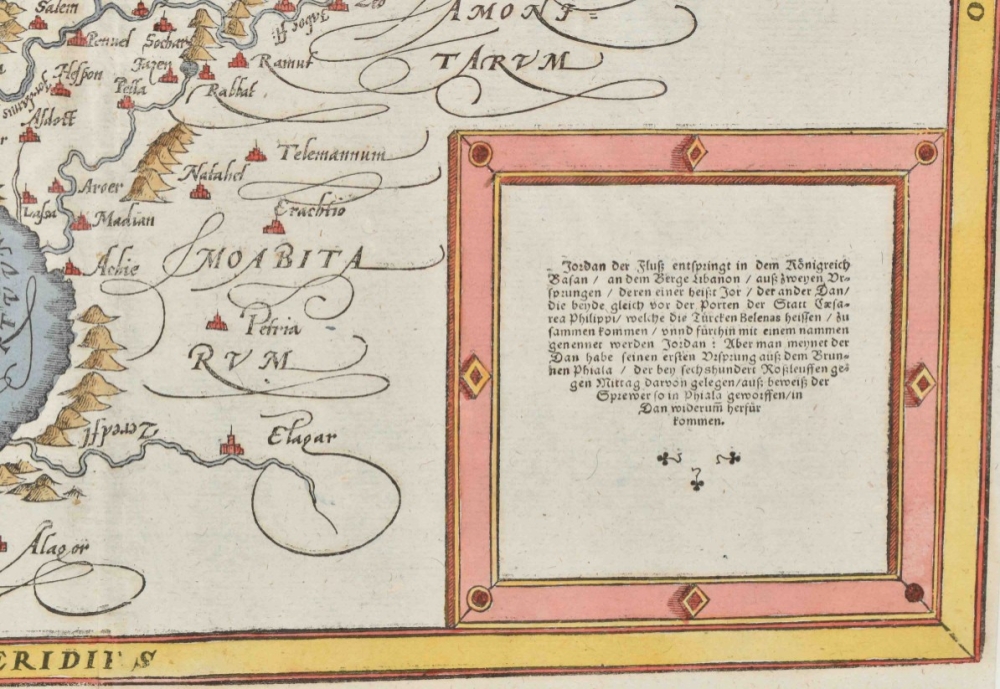 Salem
Zeo
AMONI=
Penuel
Sochar
Jazen
Ramut
TARVM
Hespon
Pella
Rabbat
Asdott
Telemannum
Natabel
Aroer
Lasa
Erachtio
Madian
MOABITA
Achie
Petria
RVM
Zered fl
Elagar
Alagor
ERIDIES
Jordan der Fluß entspringt in dem Königreich
Basan / an dem Berge Libanon / auß zweyen Vr-
sprungen / deren einer heißt Jor / der ander Dan/
die beyde gleich vor der Porten der Statt Cæsa-
rea Philippi/ welche die Türcken Belenas heissen / zu
sammen kommen / vnnd fürthin mit einem nammen
genennet werden Jordan : Aber man meynet der
Dan habe seinen ersten Vrsprung auß dem Brun-
nen Phiala / der bey sechshundert Roßleuffen ge-
gen Mittag darvon gelegen/auß beweiß der
Sprewer so in Phiala geworffen/in
Dan widerum̃ herfür
kommen.